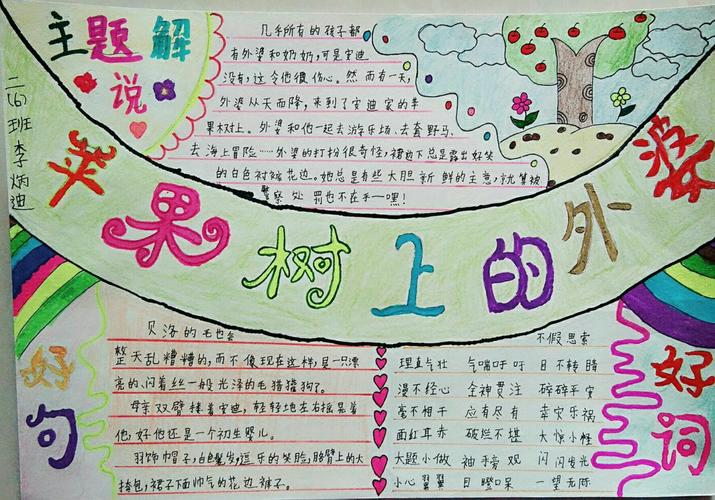 主题解说
二(6)班李炳迪
几乎所有的孩子都
有外婆和奶奶,可是安迪
没有,这令他很伤心。然而有一天,
外婆从天而降,来到了安迪家的苹
果树上。外婆和他一起去游乐场、去套野马、
去海上冒险……外婆的打扮很奇怪,裙边下总是露出好笑
的白色衬裤花边。她总是有些大胆新鲜的主意,就算被
警察处罚也不在乎—嘿!
苹果树上的外婆
好句
贝洛的毛也会
整天乱糟糟的,而不像现在这样,是一只漂
亮的、闪着丝一般光泽的毛猎猎狗了。
母亲双臂搂着安迪,轻轻地左右摇晃着
他,好他还是一个初生婴儿。
羽饰帽子,白色鬈发,逗乐的笑脸,胳臂上的大
挎包,裙子下面帅气的花边裤子。
好词
不假思索
理直气壮 气喘吁吁 目不转睛
漫不经心 全神贯注 碎碎平安
毫不相干 应有尽有 幸灾乐祸
面红耳赤 破烂不堪 大惊小怪
大题小做 袖手旁观 闪闪发光
小心翼翼 目瞪口呆 一望无际